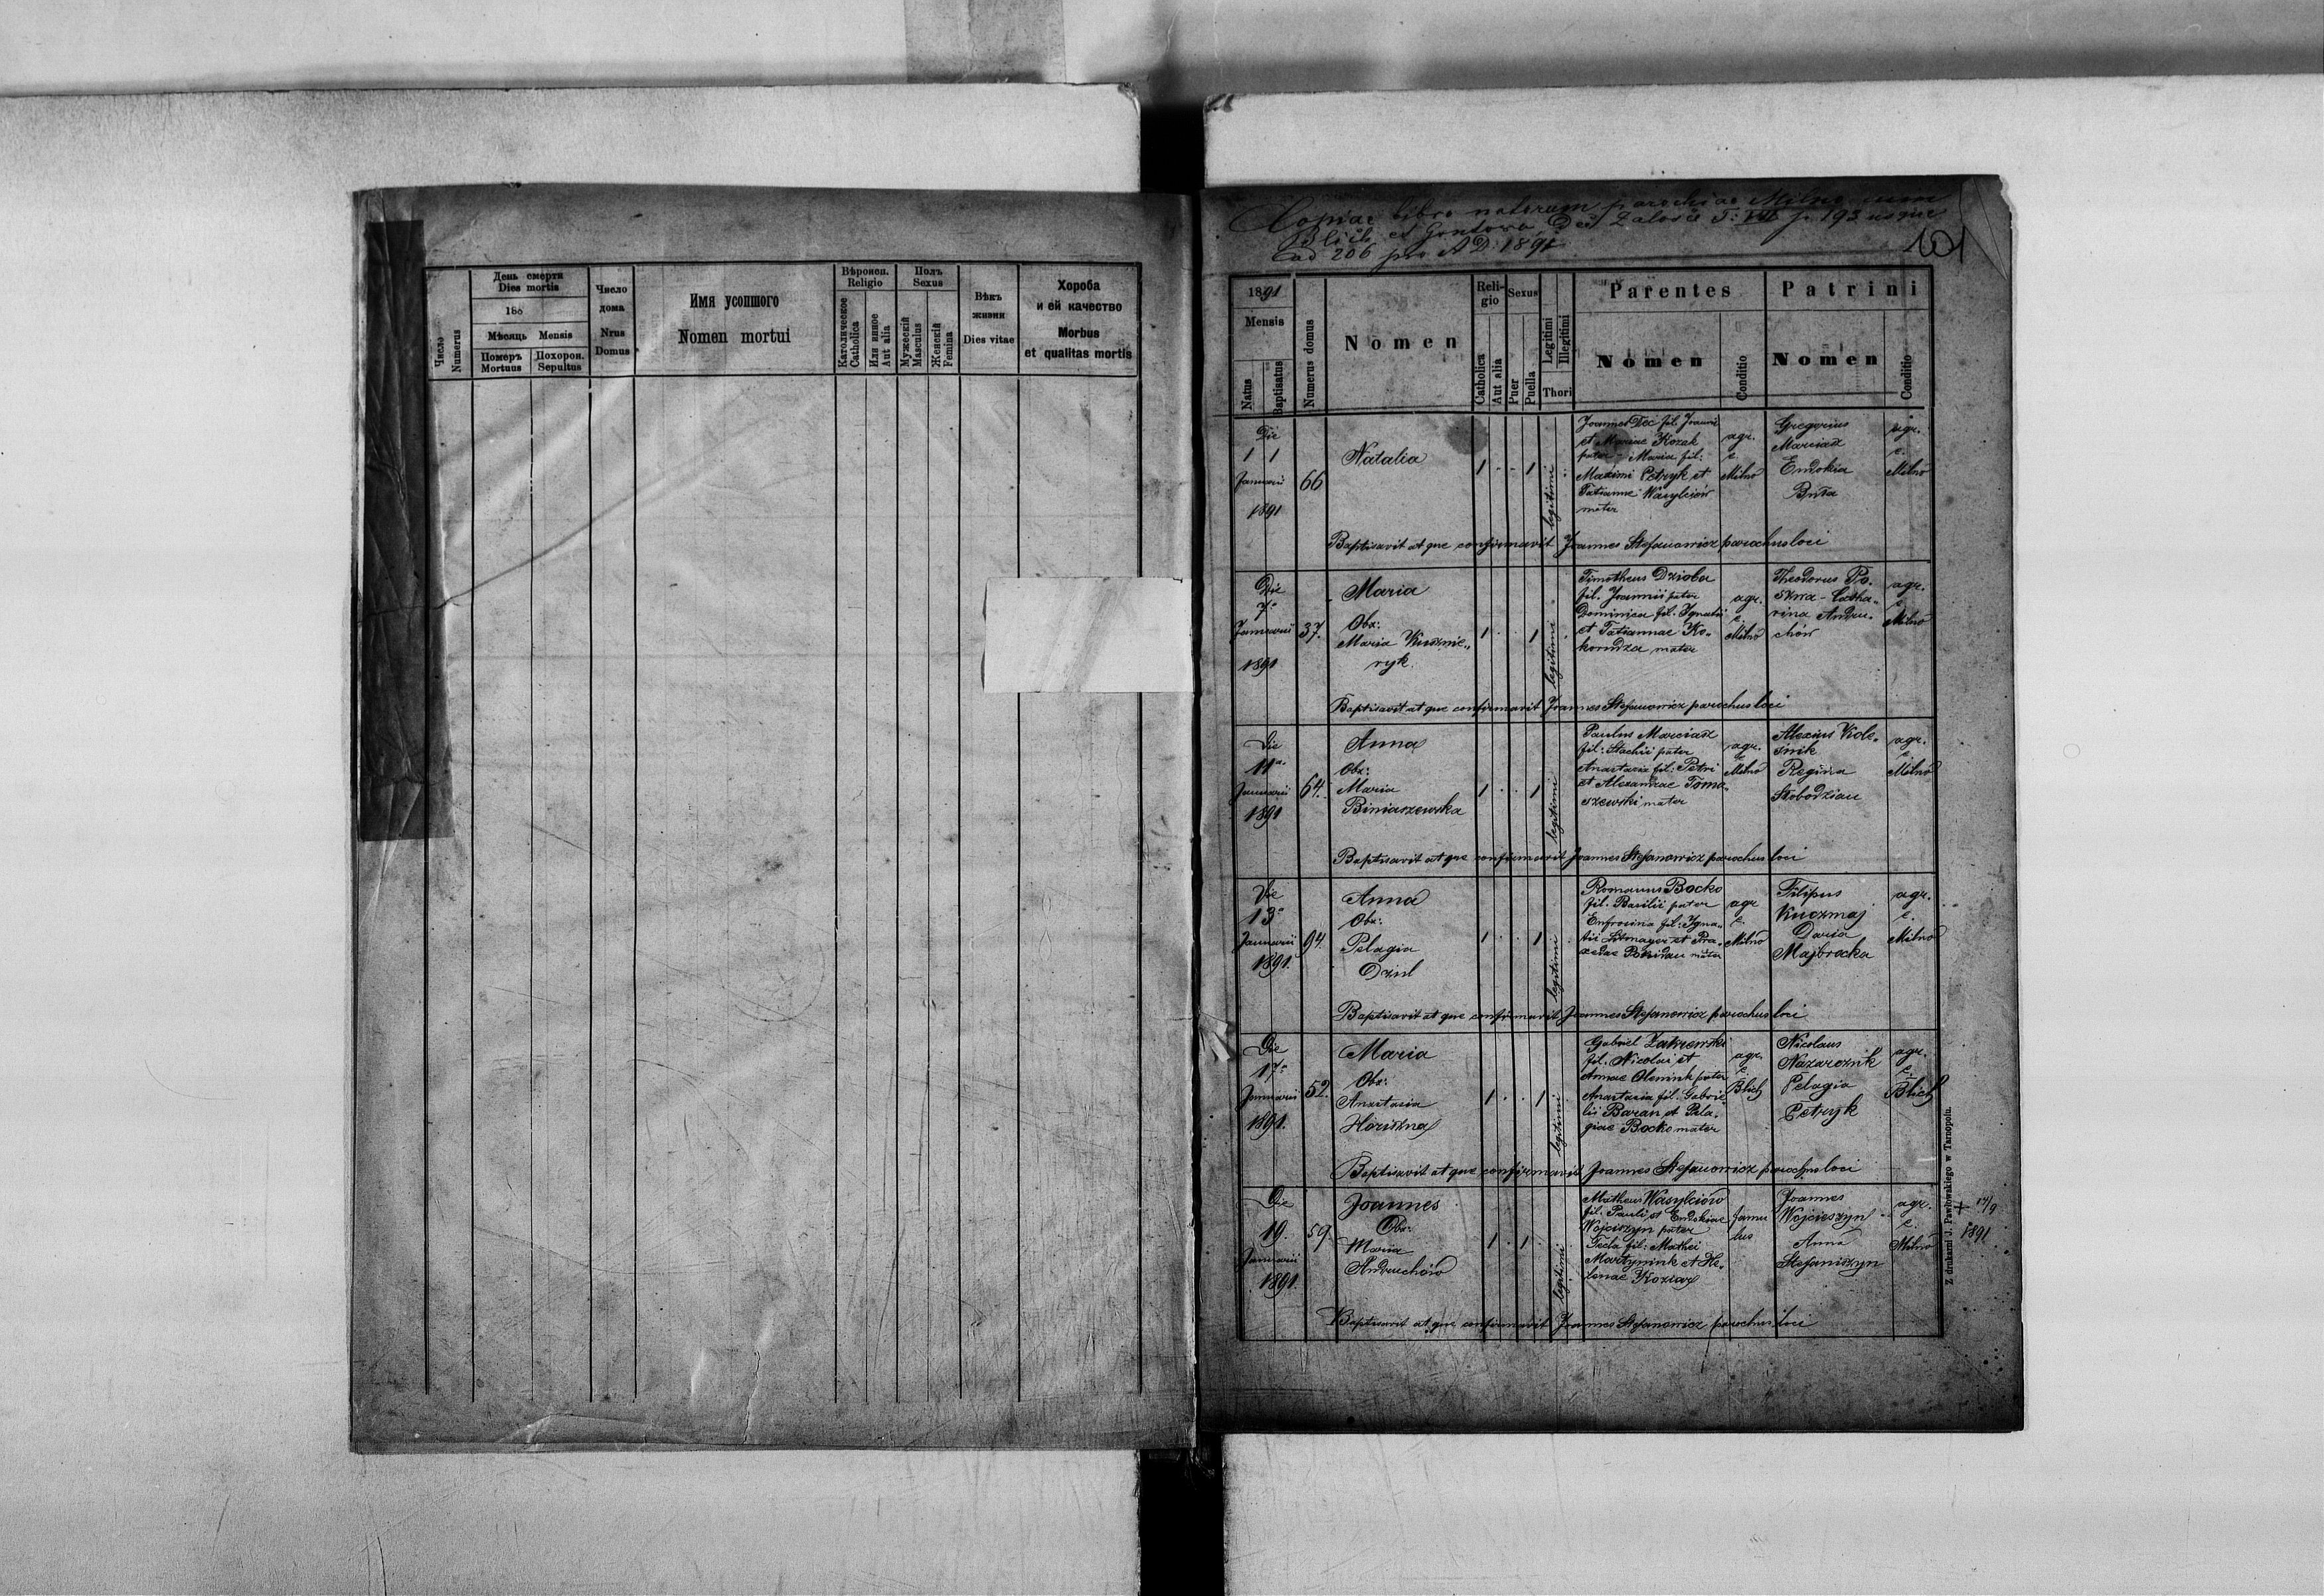 День смерти
Dies mortis
188
Мѣсяць Mensis
Число
Numerus
Померъ
Mortuus
Похорон.
Sepultus
Число
дома
Nrus
Domus
Имя усопшого
Nomen mortui
Вѣроисп.
Religio
Католическое
Catholica
Или инное
Aut alia
Полъ
Sexus
Мужескій
Masculus
Женскій
Femina
Вѣкъ
жизни
Dies vitae
Хороба
и ей качество
Morbus
et qualitas mortis
Copiae libro natorum parochiae Milno cum
Blich et Gontowa, Zalosce T: VIII p. 193 usque
ad 206 pro A D: 1891
101
1891
Mensis
Natus
Baptisatus
Numerus domus
Nomen
Religio
Catholica
Aut alia
Sexus
Puer
Puella
Legitimi
Illegitimi
Thori
Parentes
Nomen
Conditio
Patrini
Nomen
Conditio
Die
1 1
Januarii
1891
66
Natalia
1 1
legitimi
Joannes Dec fil. Joannis
et Mariae Kozak
pater - Maria fil:
Maximi Petryk et
Tatianne Wasylciów
mater
agr.
e
Milno
Gregorius
Marciasz
Eudokia
agr.
e.
Milno
Baptisavit atque confirmavit Joannes Stefanowicz parochus loci
Die
7a
Januarii
1891
37.
Maria
Obx:
Maria Kusznie„
ryk.
1 1
legitimi
Timotheus Dzioba
fil. Joannii pater
Dominica fil. Ignatii
et Tatiannae Ko„
korudza mater
agr.
e
Milno
Theodorus
Catha„
rina Andru„
chów
agr.
e
Milno
Baptisavit atque confirmavit Joannes Stefanowicz parochus loci
Die
11a
Januarii
1891
64.
Anna
Obx:
Maria
Biniaszewska
1 1
legitimi
Paulus Marciasz
fil: Stachii pater
Anastasia fil: Petri
et Alexandrae Toma„
szewski mater
agr.
e
Milno
Alexius Kole„
śnik
Regina
Słobodzian
agr.
e
Milno
Baptisavit atque confirmavit Joannes Stefanowicz parochus loci
Die
13a
Januarii
1891.
94.
Anna
Obx:
Pelagia
Dziul
1 1
legitimi
Romanus Bocko
fil. Basilii pater
Eufrosina fil: Igna„
tii et Pra„
xedae mater
agr
e.
Milno
Filipus
Kuczmaj
Daria
Majbrocka
agr.
e.
Milno
Baptisavit atque confirmavit Joannes Stefanowicz parochus loci
Die
17a
Januarii
1891.
52.
Maria
Obx:
Anastasia
Horiszna
1 1
legitimi
Gabriel Zakrewski
fil. Nicolai et
Annae Oleniuk pater
Anastasia fil. Gabrie„
lis Baran et Pela„
giae Bocko mater
agr.
e
Blich
Nicolaus
Nazarcznik
Pelagia
Petryk
agr.
e
Blich
Baptisavit atque confirmavit Joannes Stefanowicz parochus loci
Die
19.
Januarii
1891.
59
Joannes
Obx:
Maria
Andruchów
1 1
legitimi
Matheus Wasylciów
fil. Pauli et Eudokiae
Wojciszyn pater
Tecla fil: Mathei
Martyniuk et He„
lenae Koziar
famu
lus
Joannes
Wojcieszyn
Anna
Stefaniszyn
agr.
e
Milno
+ 14/9
1891
Baptisavit atque confirmavit Joannes Stefanowicz parochus loci
Z drukarni J. Pawłowskiego w Tarnopolu.